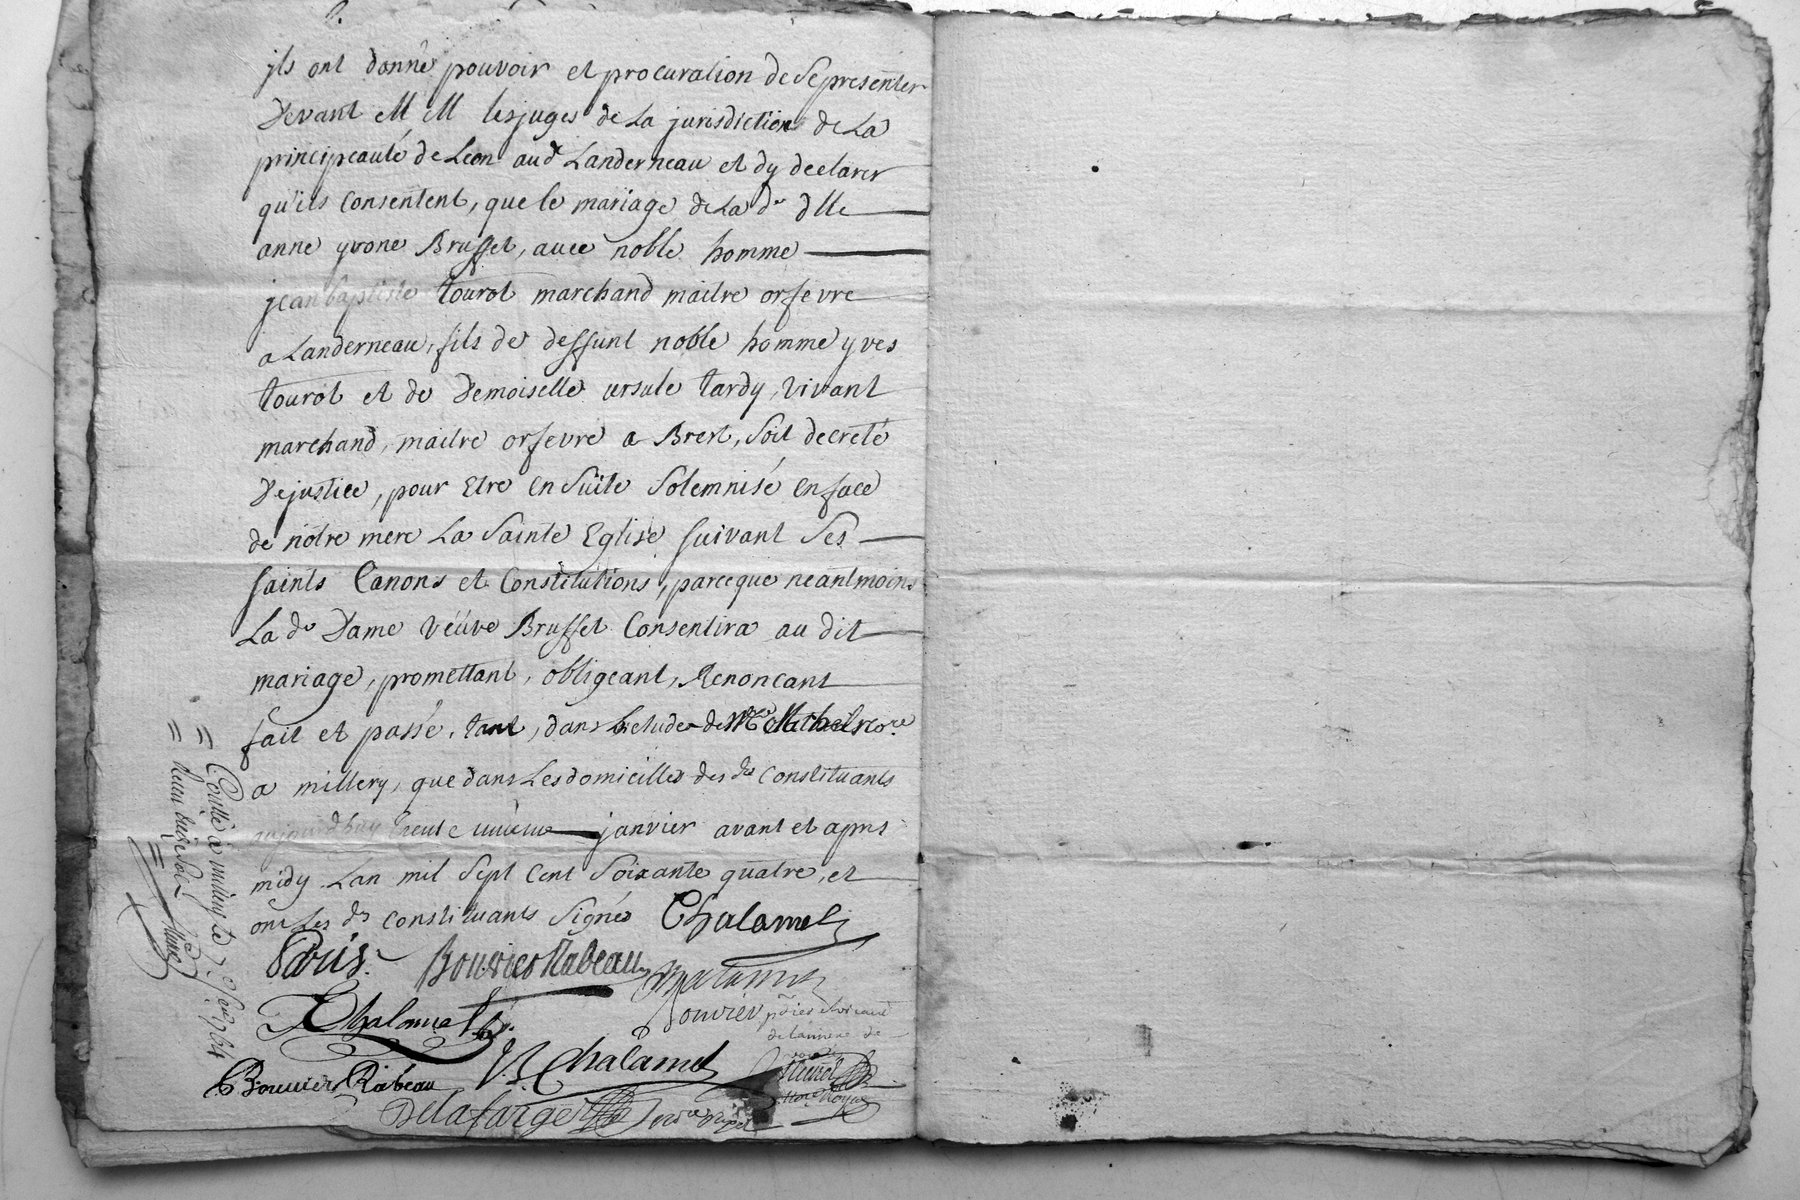 jls ont donné pouvoir et procuration de Se presenter
Devant M M les juges de La jurisdiction de La
principeauté de Leon aud Landerneau et dy declarer
qu'ils Consentent, que le mariage de La de dlle
anne yvone Brusset, avec noble homme
jean baptiste tourot marchand maitre orfevre
a Landerneau, fils de deffunt noble homme yves
tourot et de Demoiselle ursule tardy, vivant
marchand, maitre orfevre a Brest, Soit decreté
De justice, pour Etre En Suite Solemnisé En face
de nôtre mere La Sainte Eglise suivant Ses
saints Canons et Constitutions, parceque neantmoins
La de Dame veuve Brusset Consentira au dit
mariage, promettant, obligeant, Renoncant
fait et passé, tant, dans Letude de
a millery, que dans Les domicilles des ds Constituants
aujourdhuy trente unieme janvier avant et apres
midy Lan mil Sept Cent Soixante quatre, et
ont Les ds Constituants Signé Chalamel
Paris Bouvier Rabeau
Chalamel
Bouvier
Chalamel
Bouvier Rabeau
Delafarge
Conllé à millery Le